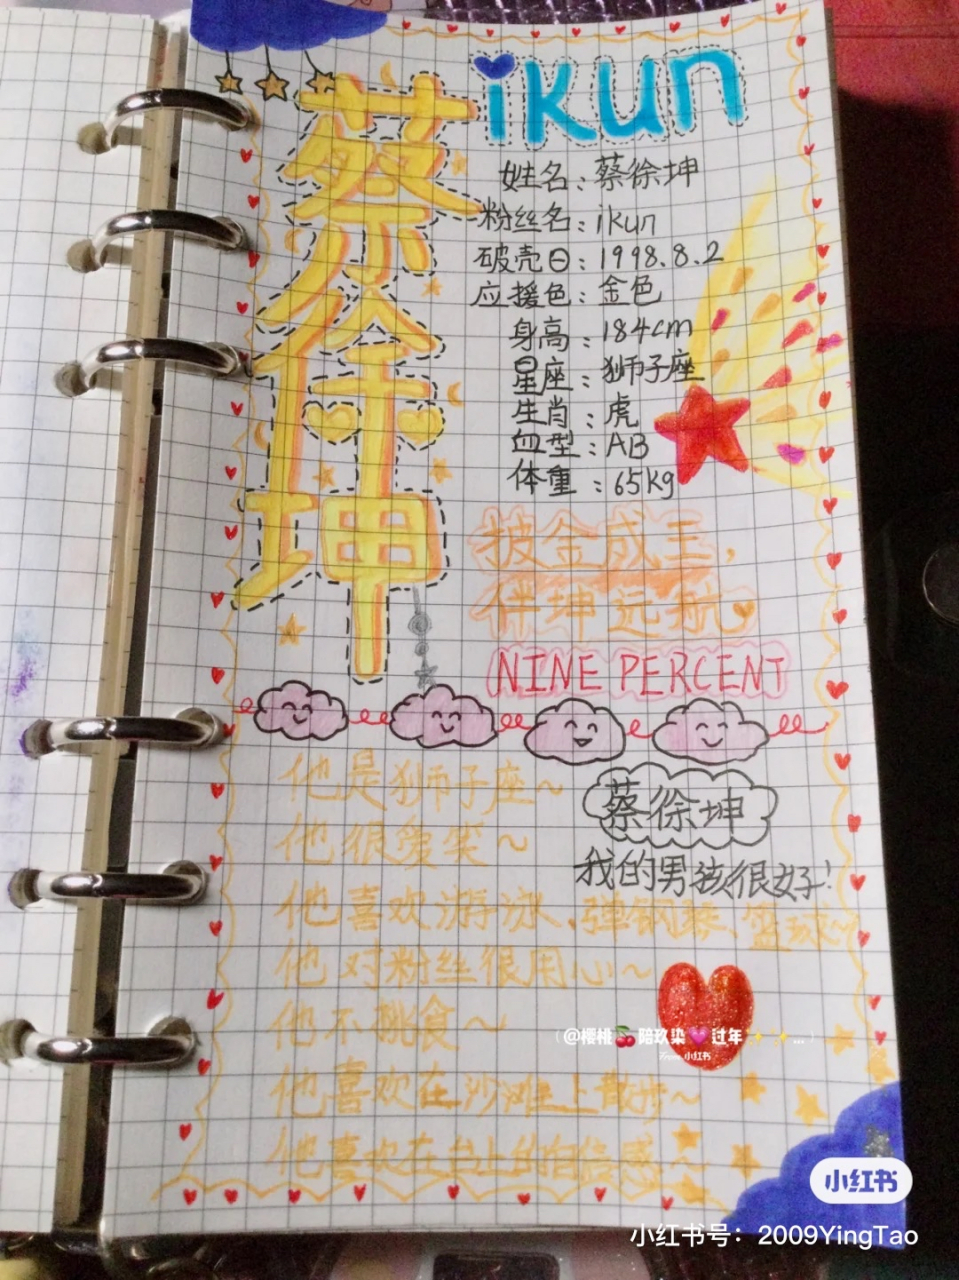 蔡徐坤
ikun
姓名：蔡徐坤
粉丝名：ikun
破壳日：1998.8.2
应援色：金色
身高：184cm
星座：狮子座
生肖：虎
血型：AB
体重：65kg
披金成王，
伴坤远航
NINE PERCENT
他是狮子座~
蔡徐坤
他很爱笑~
我的男孩很好!
他喜欢游泳、弹钢琴、篮球~
他对粉丝很用心~
他不挑食~
@樱桃🍒陪玖染💗过年✨✨...
From 小红书
他喜欢在沙滩上散步~
他喜欢在台上的自信感~
小红书
小红书号：2009YingTao